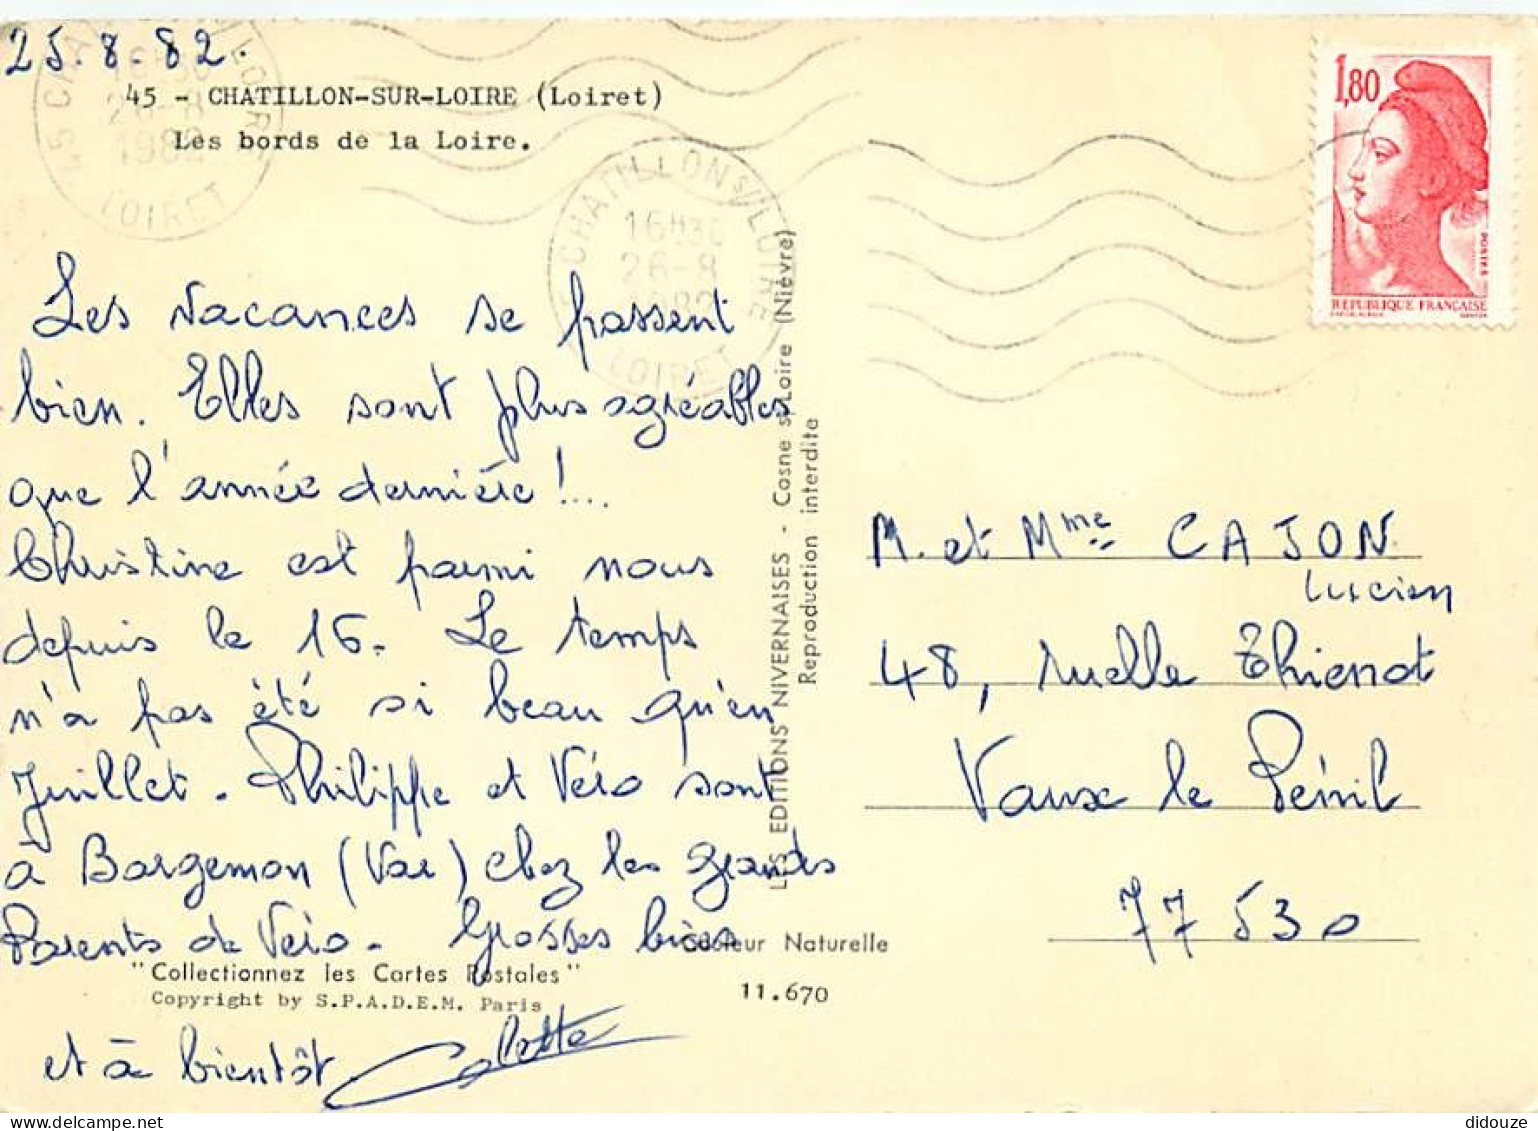 25.8.82.
45 - CHATILLON-SUR-LOIRE (Loiret)
Les bords de la Loire.
16H30
26-8
1982
LOIRET
CHATILLON S/LOIRE
16H30
26-8
1982
LOIRET
1,80
POSTES
REPUBLIQUE FRANÇAISE
Les vacances se passent
bien. Elles sont plus agréables
que l'année dernière !...
Christine est parmi nous
depuis le 16. Le temps
n'a pas été si beau qu'en
Juillet. Philippe et Véro sont
à Bargemon (Var) chez les grands
Parents de Véro. Grosses bises
et à bientôt Colette
"Collectionnez les Cartes Postales"
Copyright by S.P.A.D.E.M. Paris
Couleur Naturelle
11.670
LES EDITIONS NIVERNAISES - Cosne s/Loire (Nièvre)
Reproduction interdite
M. et Mme CAJON
Lucien
48, ruelle Thienot
Vaux le Pénil
77530
delcampe.net
didouze